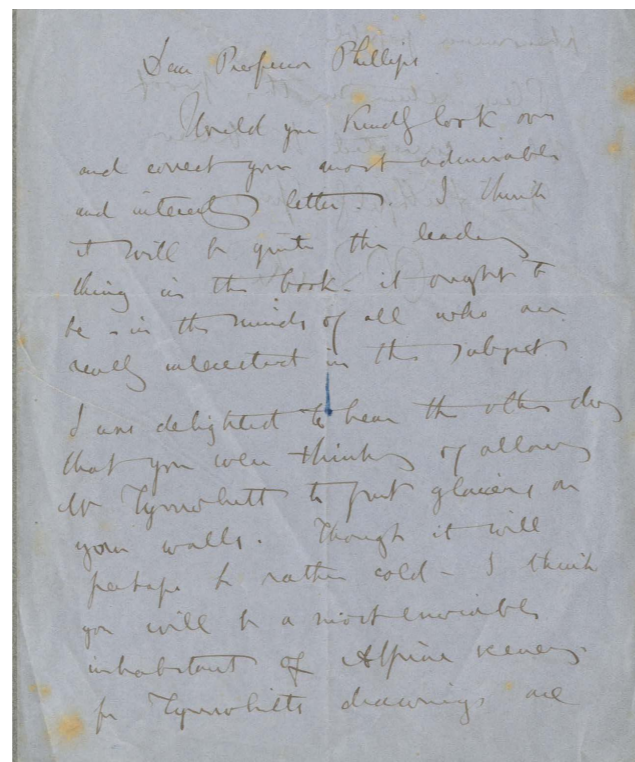 Dear Professor Phillips
Would you kindly look over
and correct your most admirable
and interesting letter. I think
it will be quite the leading
thing in the book - it ought to
be - in the minds of all who are
really interested in the subject
I was delighted to hear the other day
that you were thinking of allowing
Mr Tyrwhitt to put glaciers on
your walls. Though it will
perhaps be rather cold - I think
you will be a most enviable
inhabitant of Alpine scenery
for Tyrwhitts drawings are